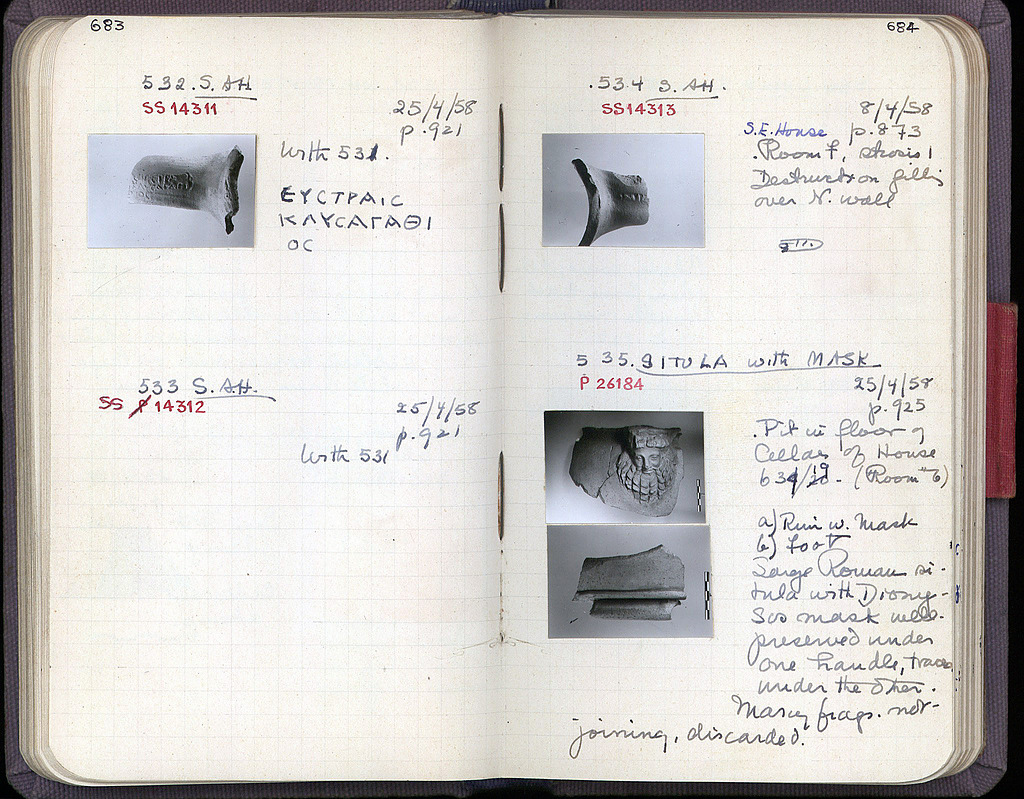 683
532. S. AH
SS 14311
25/4/58
p. 921
With 531.
ΕΥCΤΡΑΙC
ΚΛΥCΑΓΑΘΙ
ΟC
533 S. A.H.
SS P 14312
25/4/58
p. 921
With 531
684
.534 S. AH.
SS14313
8/4/58
S.E. House p. 873
.Room f, 1
Destruction filling
over N. wall
535. SITULA with MASK
P 26184
25/4/58
p. 925
.Pit in floor of
Cellar of House
(Room 6)
a) Rim w. Mask
b) foot
Large Roman si-
tula with Diony-
sos mask well-
preserved under
one handle, traces
under the other.
Many frags. not-
joining, discarded.